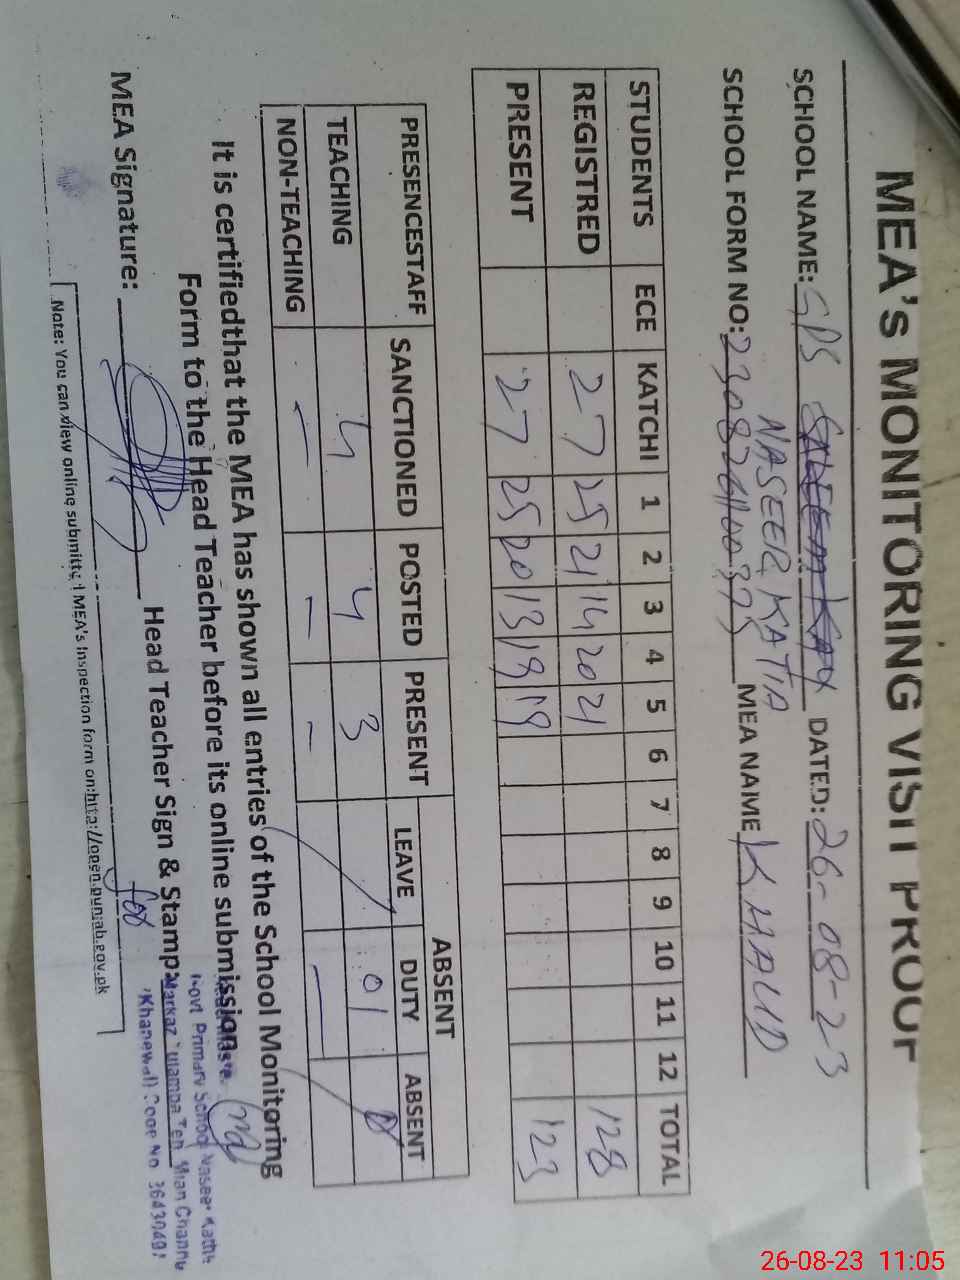 MEA's MONITORING VISIT PROOF
SCHOOL NAME: GPS DATED: 26-08-23
NASEER KATIA
SCHOOL FORM NO: MEA NAME K HALID
STUDENTS ECE KATCHI 1 2 3 4 5 6 7 8 9 10 11 12 TOTAL
REGISTRED 27 25 21 14 20 21 128
PRESENT 27 25 20 13 19 19 123
PRESENCESTAFF SANCTIONED POSTED PRESENT ABSENT
LEAVE DUTY ABSENT
TEACHING 4 4 3 / 01
NON-TEACHING - - - / - /
It is certifiedthat the MEA has shown all entries of the School Monitoring
Form to the Head Teacher before its online submission.
Govt Primary School
MEA Signature: Head Teacher Sign & Stamp: Markaz Tulamba Teh. Mian Channu
for Khanewal
Note: You can view online submitted MEA's Inspection form on:http://open.punjab.gov.pk
26-08-23 11:05